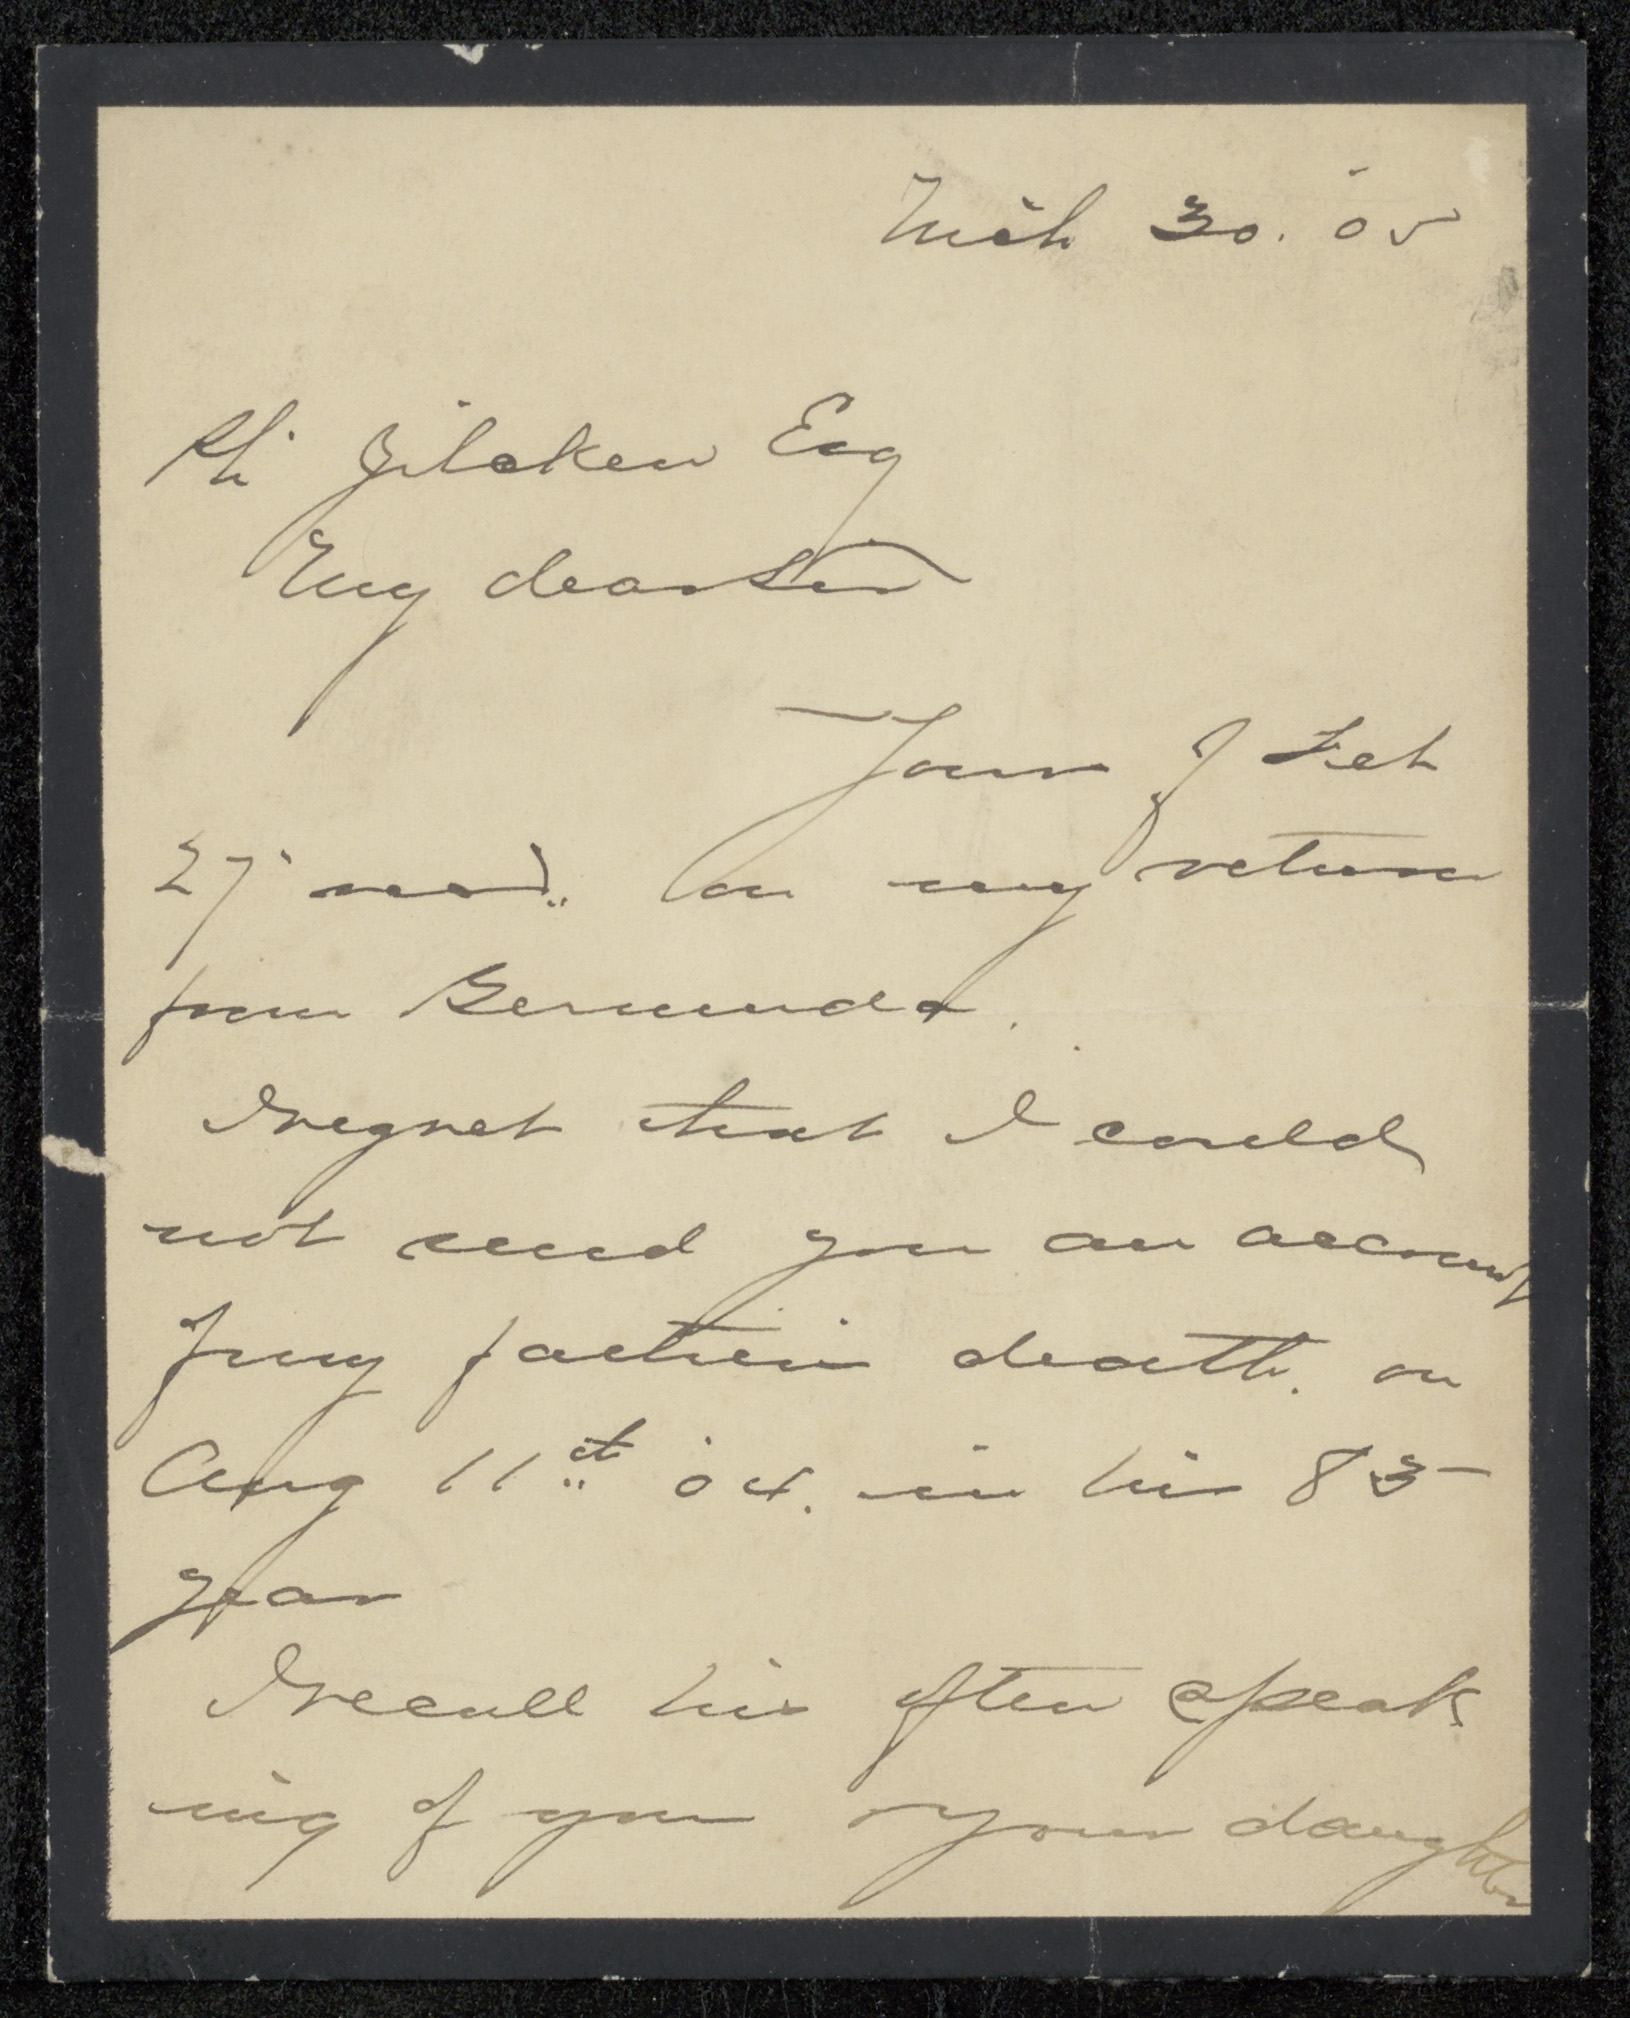 Mch 30. 05
Ph. Zilcken Esq
My dear Sir
Yours of Feb
27 recd. on my return
from Bermuda.
I regret that I could
not send you an account
of my father's death. on
Aug 11th 04. in his 83
year
I recall his often speak
ing of you & your daughter